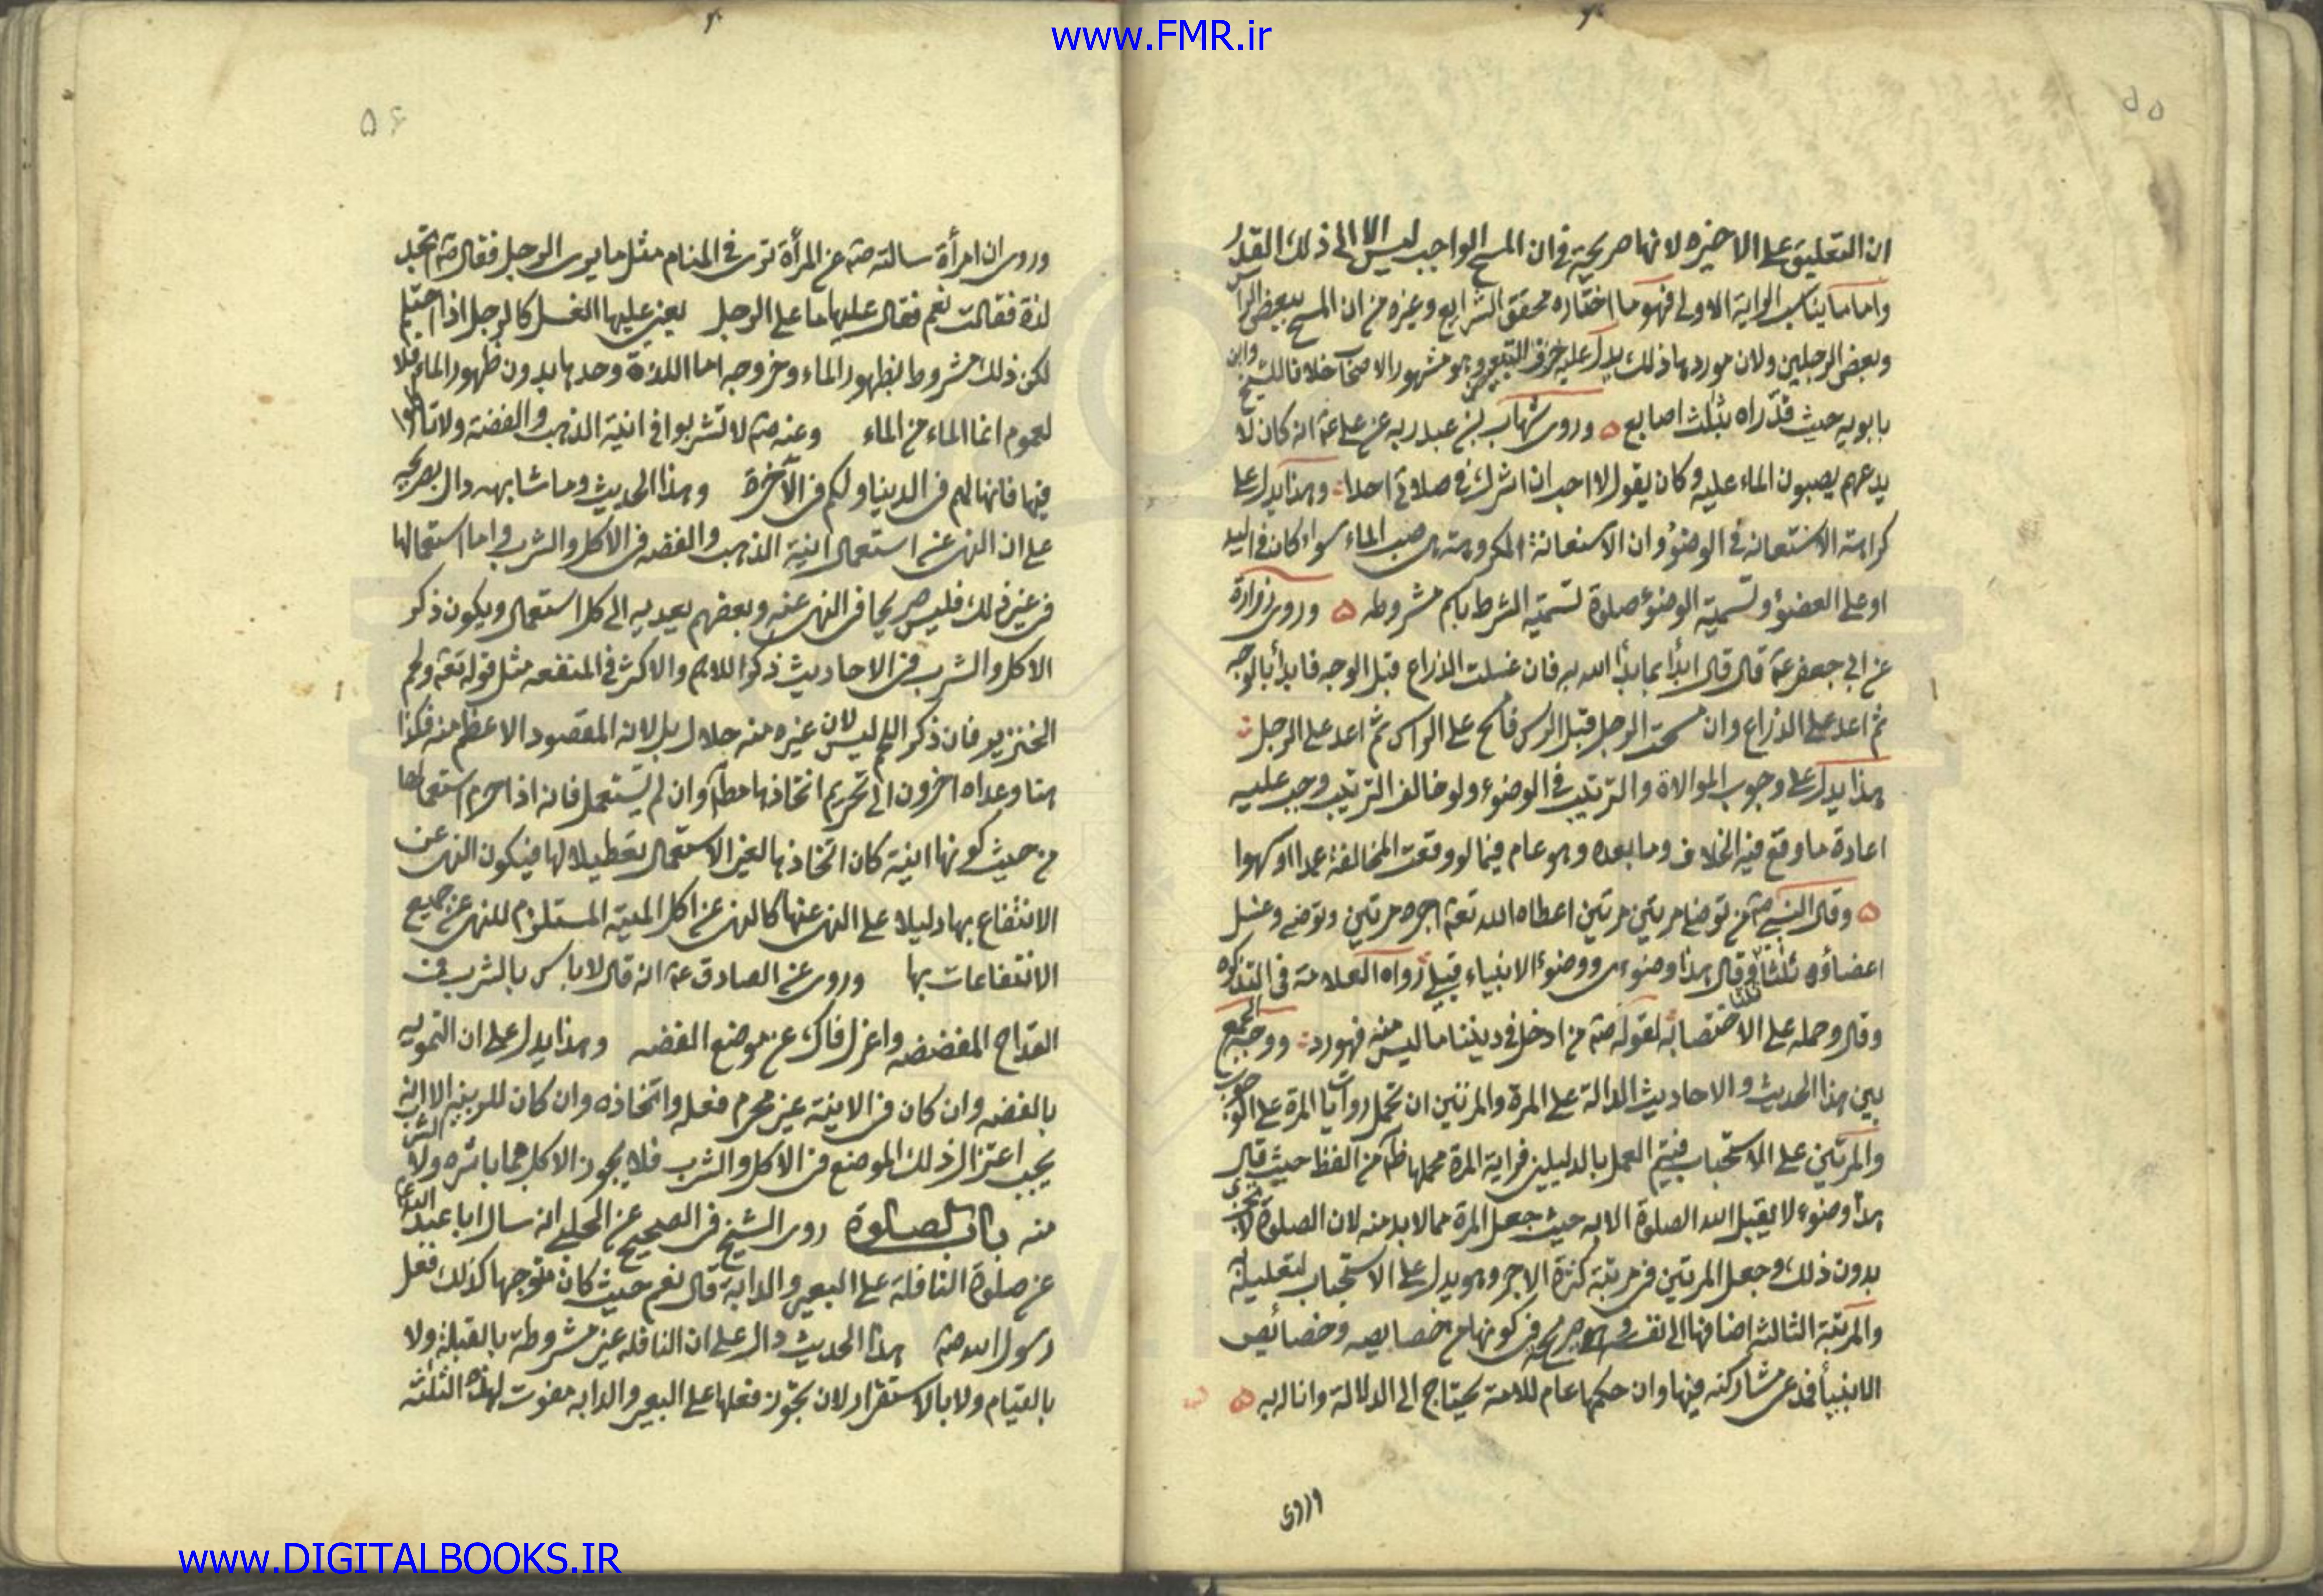 www.FMR.ir
۵۵
ان التعليق على الاخيره لانها صريحة فى ان المسح الواجب ليس الا الى ذلك القدر
واما ما يناسب الرواية الاولى فهو ما اختاره محقق الشرايع وغيره من ان المسح ببعض الراس
وبعض الرجلين ولان موردها ذلك يدل عليه حرف التبعيض وهو مشهور الاصحاب خلافا للشيخ وابن
بابويه حيث قدّراه بثلث اصابع ه وروى شهاب بن عبد ربه عن على عم انه كان لا
يدعهم يصبون الماء عليه وكان يقول لا احب ان اشرك فى صلاتى احدا وهذا يدل على
كراهته الاستعانه فى الوضوء وان الاستعانة المكروهة هى صب الماء سواء كان فى اليد
او على العضو وتسمية الوضوء صلوة تسمية الشرط باسم مشروطه ه وروى زرارة
عن ابى جعفر عم قال قال ابدأ بما بدأ الله به فان غسلت الذراع قبل الوجه فابدأ بالوجه
ثم اعد على الذراع وان مسحت الرجل قبل الراس فامسح على الراس ثم اعد على الرجل
هذا يدل على وجوب الموالاة والترتيب فى الوضوء ولو خالف الترتيب وجب عليه
اعادة ما وقع فيه الخلاف وما بعده وهو عام فيما لو وقعت المخالفة عمدا او سهوا
ه وقال النبى صم من توضا مرتين مرتين اعطاه الله تعم اجره مرتين وتوضى وغسل
اعضاؤه ثلثا ثلثا وقال هذا وضوءى ووضوء الانبياء قبلى رواه العلامة فى التذكره
وقال وحمله على الاختصا به لقوله صم من ادخل فى ديننا ما ليس منه فهو رد ووجه الجمع
بين هذا الحديث والاحاديث الدالة على المرة والمرتين ان تحمل روايات المرة على الوجوب
والمرتين على الاستحباب فيتم العمل بالدليلين فراية المرة محملها ظم من الفظ حيث قال
هذا وضوء لا يقبل الله الصلوة الا به حيث جعل المرة مما لا بد منه لان الصلوة لا تجزى
بدون ذلك وجعل المرتين فى مرتبة كثرة الاجر وهو يدل على الاستحباب لتعليله
والمرتبة الثالثه اضافها الى نفسه وهو صريح فى كونها من خصايصه وخصائص
الانبيأ فمدعى مشاركته فيها وان حكمها عام للامة يحتاج الى الدلالة وانا له به ه
وروى
۵۶
وروى ان امرأة سالته صم عن المرأة ترى فى المنام مثل ما يرى الرجل فقال صم اتجد
لذة فقالت نعم فقال عليها ما على الرجل يعنى عليها الغسل كالرجل اذا احتلم
لكن ذلك مشروط بظهور الماء وخروجه اما اللذة وحدها بدون ظهور الماء فلا
لعموم انما الماء من الماء وعنه صم لا تشربوا فى انية الذهب والفضة ولا تاكلوا
فيها فانها لهم فى الدنيا ولكم فى الآخرة وهذا الحديث وما شابهه دال بصريحه
على ان النهى عن استعمال انية الذهب والفضه فى الاكل والشرب واما استعمالها
فى غير ذلك فليس صريحا فى النهى عنه وبعضهم يعديه الى كل استعمال ويكون ذكر
الاكل والشرب فى الاحاديث ذكرا للاهم والاكثر فى المنفعه مثل قوله تعم ولحم
الخنزير فان ذكر اللحم ليس لان غيره منه حلال بل لانه المقصود الاعظم منه فكذا
هنا وعداه اخرون الى تحريم اتخاذها مطلقا وان لم يستعمل فانه اذا حرم استعمالها
من حيث كونها انية كان اتخاذها لغير الاستعمال تعطيلا لها فيكون النهى عن
الانتفاع بها دليلا على النهى عنها كالنهى عن اكل الميتة المستلزم للنهى عن جميع
الانتفاعات بها وروى عن الصادق عم انه قال لا باس بالشرب فى
القداح المفضضه واعزل فاك عن موضع الفضه وهذا يدل على ان التمويه
بالفضه وان كان فى الانية غير محرم فعله واتخاذه وان كان للزينه الا انه
يجب اعتزال ذلك الموضع فى الاكل والشرب فلا يجوز الاكل مما باشره ولا الشرب
منه باب الصلوة روى الشيخ فى الصحيح عن الحلبى انه سال ابا عبد الله عم
عن صلوة النافلة على البعير والدابة قال نعم حيث كان متوجها كذلك فعل
رسول الله صم هذا الحديث دال على ان النافله غير مشروطة بالقبلة ولا
بالقيام ولا بالاستقرار لان تجوز فعلها على البعير والدابه مفوت لهذه الثلثه
www.DIGITALBOOKS.IR